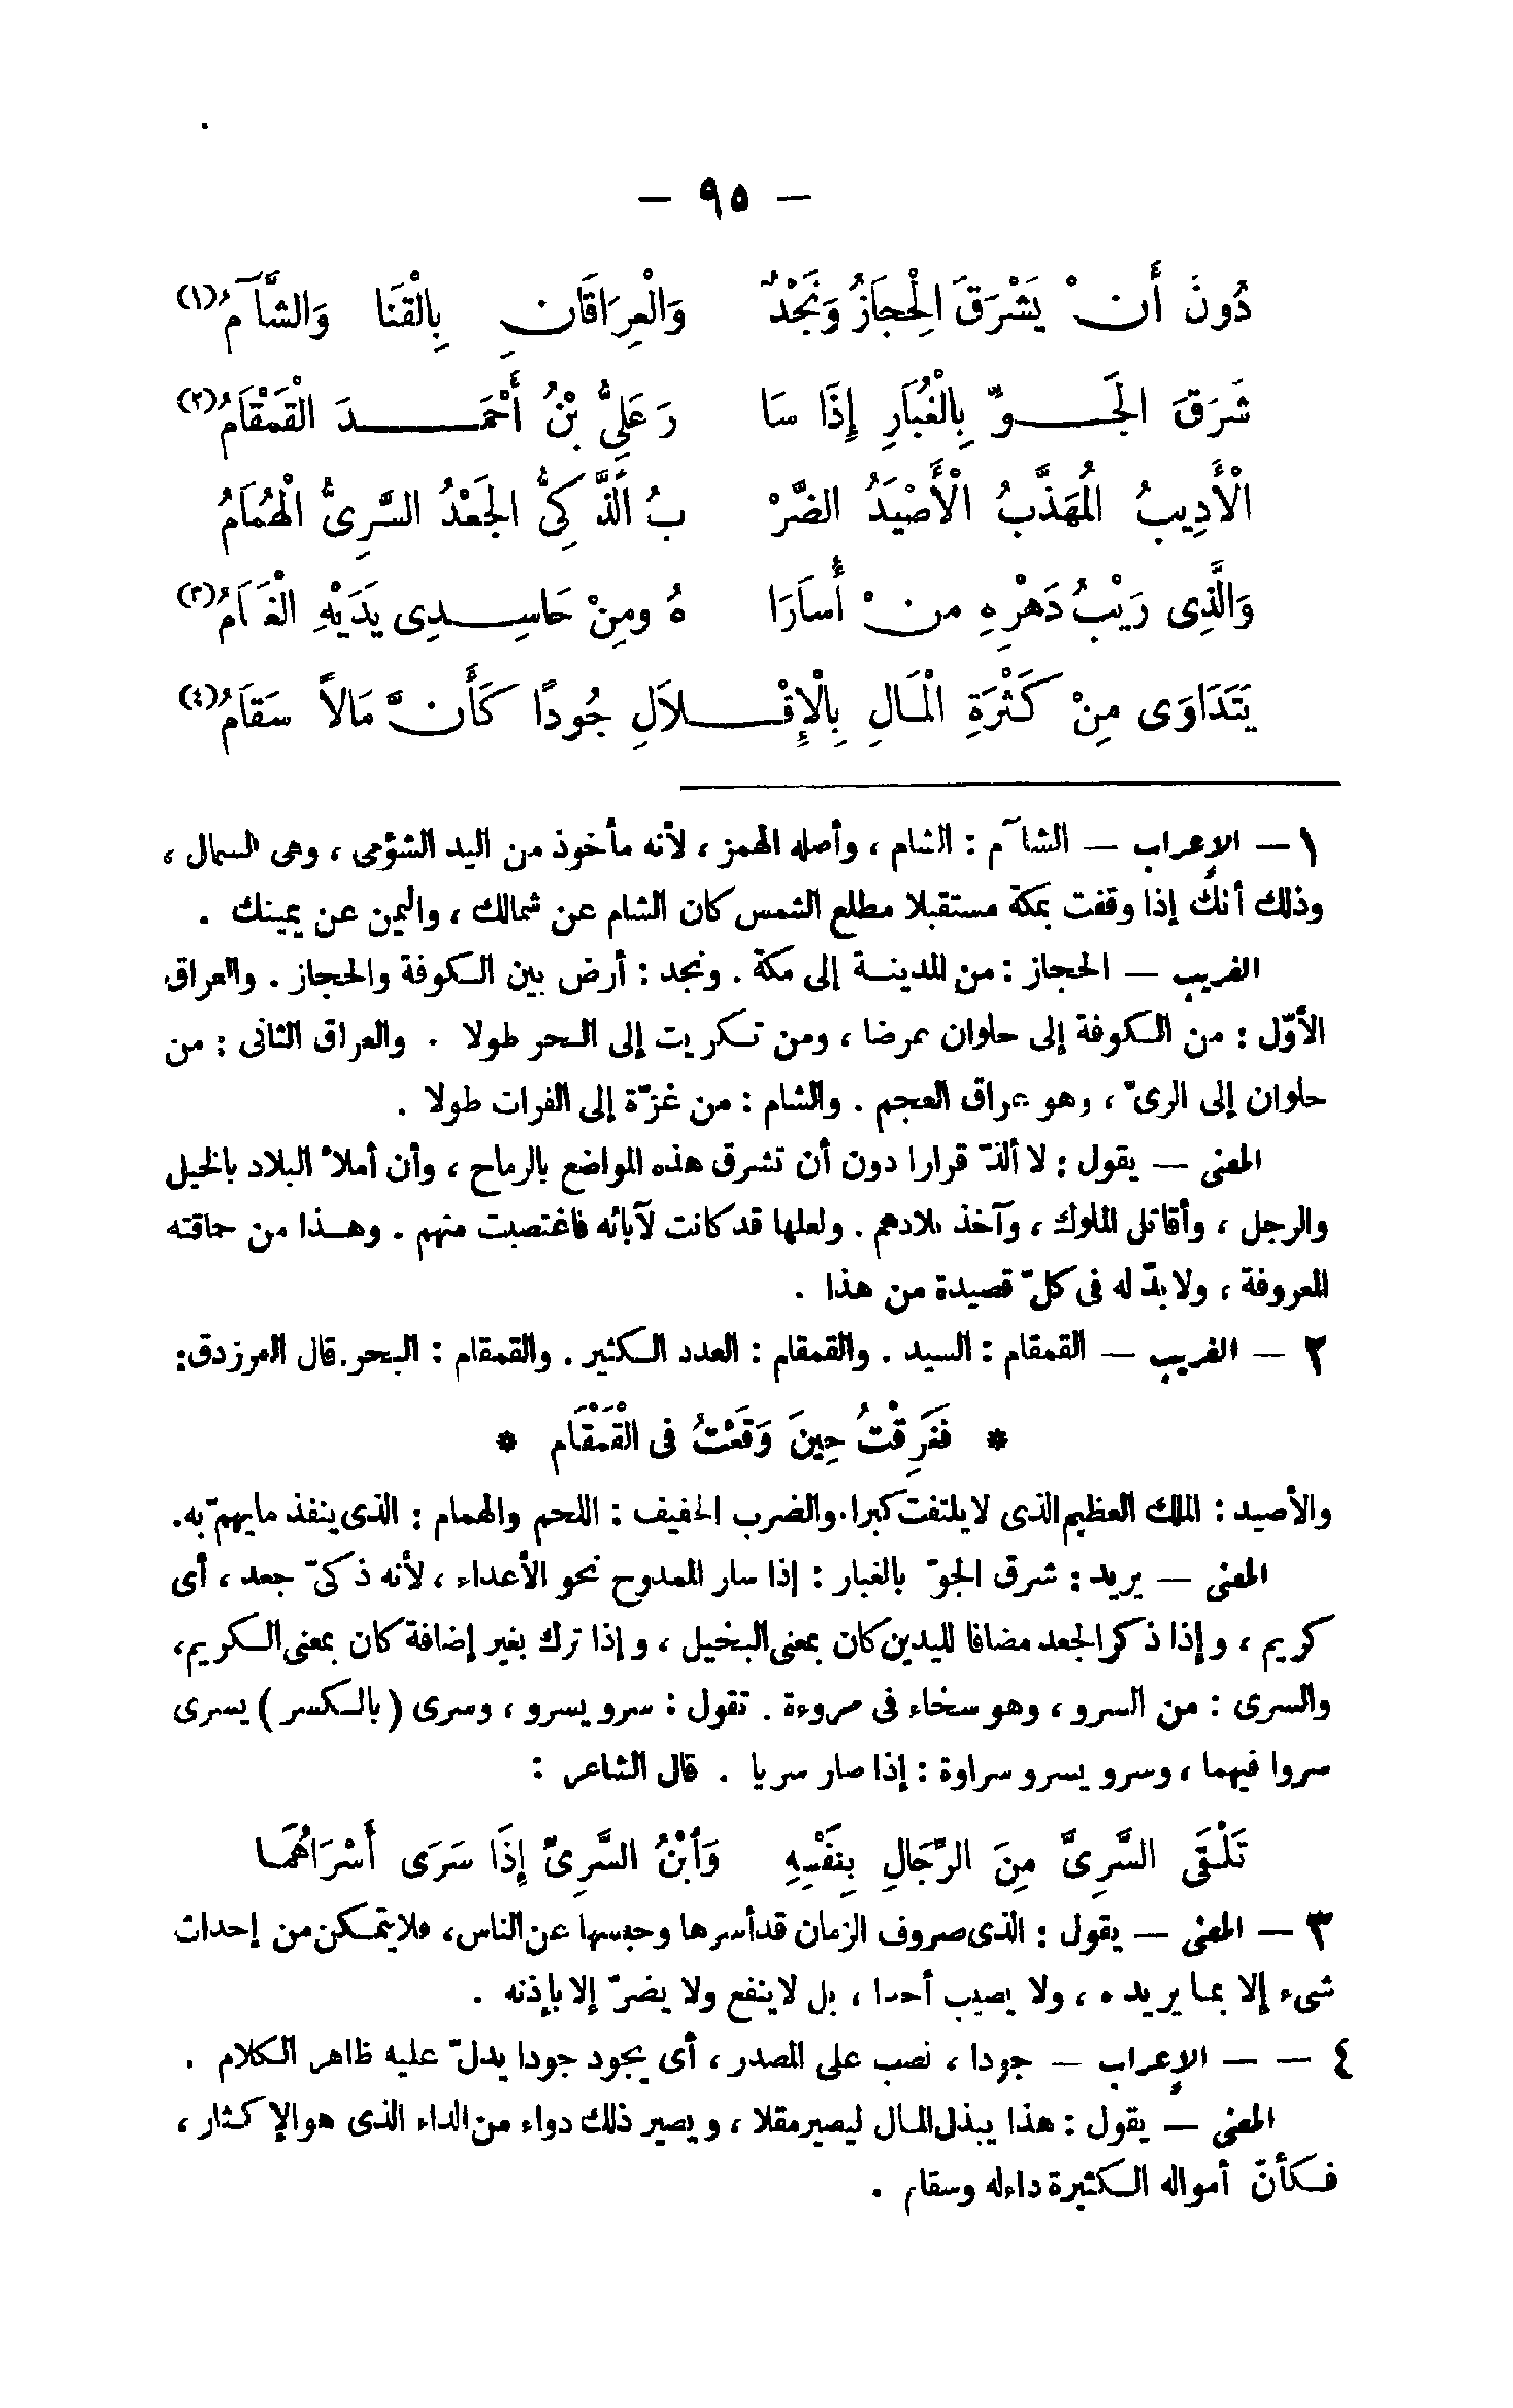 — ٩٥ —
دُونَ أَنْ يَشْرَقَ الْحِجَازُ وَنَجْدٌ وَالْعِرَاقَانِ بِالْقَنَا وَالشَّآمُ (١)
شَرَقَ الْجَوِّ بِالْغُبَارِ إِذَا سَا رَ عَلِيُّ بْنُ أَحْمَدَ الْقَمْقَامُ (٢)
الْأَدِيبُ الْمُهَذَّبُ الْأَصْيَدُ الضَّرْ بُ الذَّكِىُّ الْجَعْدُ السَّرِىُّ الْهُمَامُ
وَالَّذِى رَيْبُ دَهْرِهِ مِنْ أُسَارَا هُ ومِنْ حَاسِدِى يَدَيْهِ الْغَمَامُ (٣)
يَتَدَاوَى مِنْ كَثْرَةِ الْمَالِ بِالْإِقْلَالِ جُودًا كَأَنَّ مَالاً سَقَامُ (٤)
١ — الإعراب — الشآم : الشام ، وأصله الهمز ، لأنه مأخوذ من اليد الشؤمى ، وهى الشمال ،
وذلك أنك إذا وقفت بمكة مستقبلا مطلع الشمس كان الشام عن شمالك ، واليمن عن يمينك .
الغريب — الحجاز : من المدينة إلى مكة . ونجد : أرض بين الكوفة والحجاز . والعراق
الأوّل : من الكوفة إلى حلوان عرضا ، ومن تكريت إلى البحر طولا . والعراق الثانى : من
حلوان إلى الرىّ ، وهو عراق العجم . والشام : من غزّة إلى الفرات طولا .
المعنى — يقول : لا ألذّ قرارا دون أن تشرق هذه المواضع بالرماح ، وأن أملأ البلاد بالخيل
والرجل ، وأقاتل الملوك ، وآخذ بلادهم . ولعلها قد كانت لآبائه فاغتصبت منهم . وهذا من حماقته
المعروفة ، ولا بدّ له فى كلّ قصيدة من هذا .
٢ — الغريب — القمقام : السيد . والقمقام : العدد الكثير . والقمقام : البحر . قال الفرزدق :
* فَغَرِقْتُ حِينَ وَقَعْتُ فى الْقَمْقَام *
والأصيد : الملك العظيم الذى لا يلتفت كبرا . والضرب الخفيف : اللحم والهمام : الذى ينفذ ما يهمّ به .
المعنى — يريد : شرق الجوّ بالغبار : إذا سار الممدوح نحو الأعداء ، لأنه ذكىّ جعد ، أى
كريم ، وإذا ذكر الجعد مضافا لليدين كان بمعنى البخيل ، وإذا ترك بغير إضافة كان بمعنى الكريم ،
والسرى : من السرو ، وهو سخاء فى مروءة . تقول : سرو يسرو ، وسرى (بالكسر) يسرى
سروا فيهما ، وسرو يسرو سراوة : إذا صار سريا . قال الشاعر :
تَلْقَى السَّرِىَّ مِنَ الرِّجَالِ بِنَفْسِهِ وَابْنُ السَّرِىِّ إِذَا سَرَى أَسْرَاهُمَا
٣ — المعنى — يقول : الذى صروف الزمان قد أسرها وحبسها عن الناس ، فلا يتمكن من إحداث
شىء إلا بما يريده ، ولا يصيب أحدا ، بل لا ينفع ولا يضرّ إلا بإذنه .
٤ — — الإعراب — جودا ، نصب على المصدر ، أى يجود جودا يدلّ عليه ظاهر الكلام .
المعنى — يقول : هذا يبذل المال ليصير مقلا ، ويصير ذلك دواء من الداء الذى هو الإكثار ،
فكأنّ أمواله الكثيرة داء له وسقام .